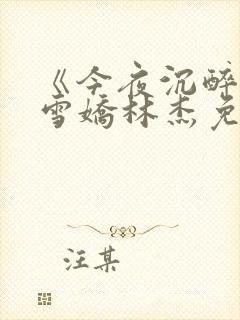 《今夜沉醉
雪娇林杰免
汪某